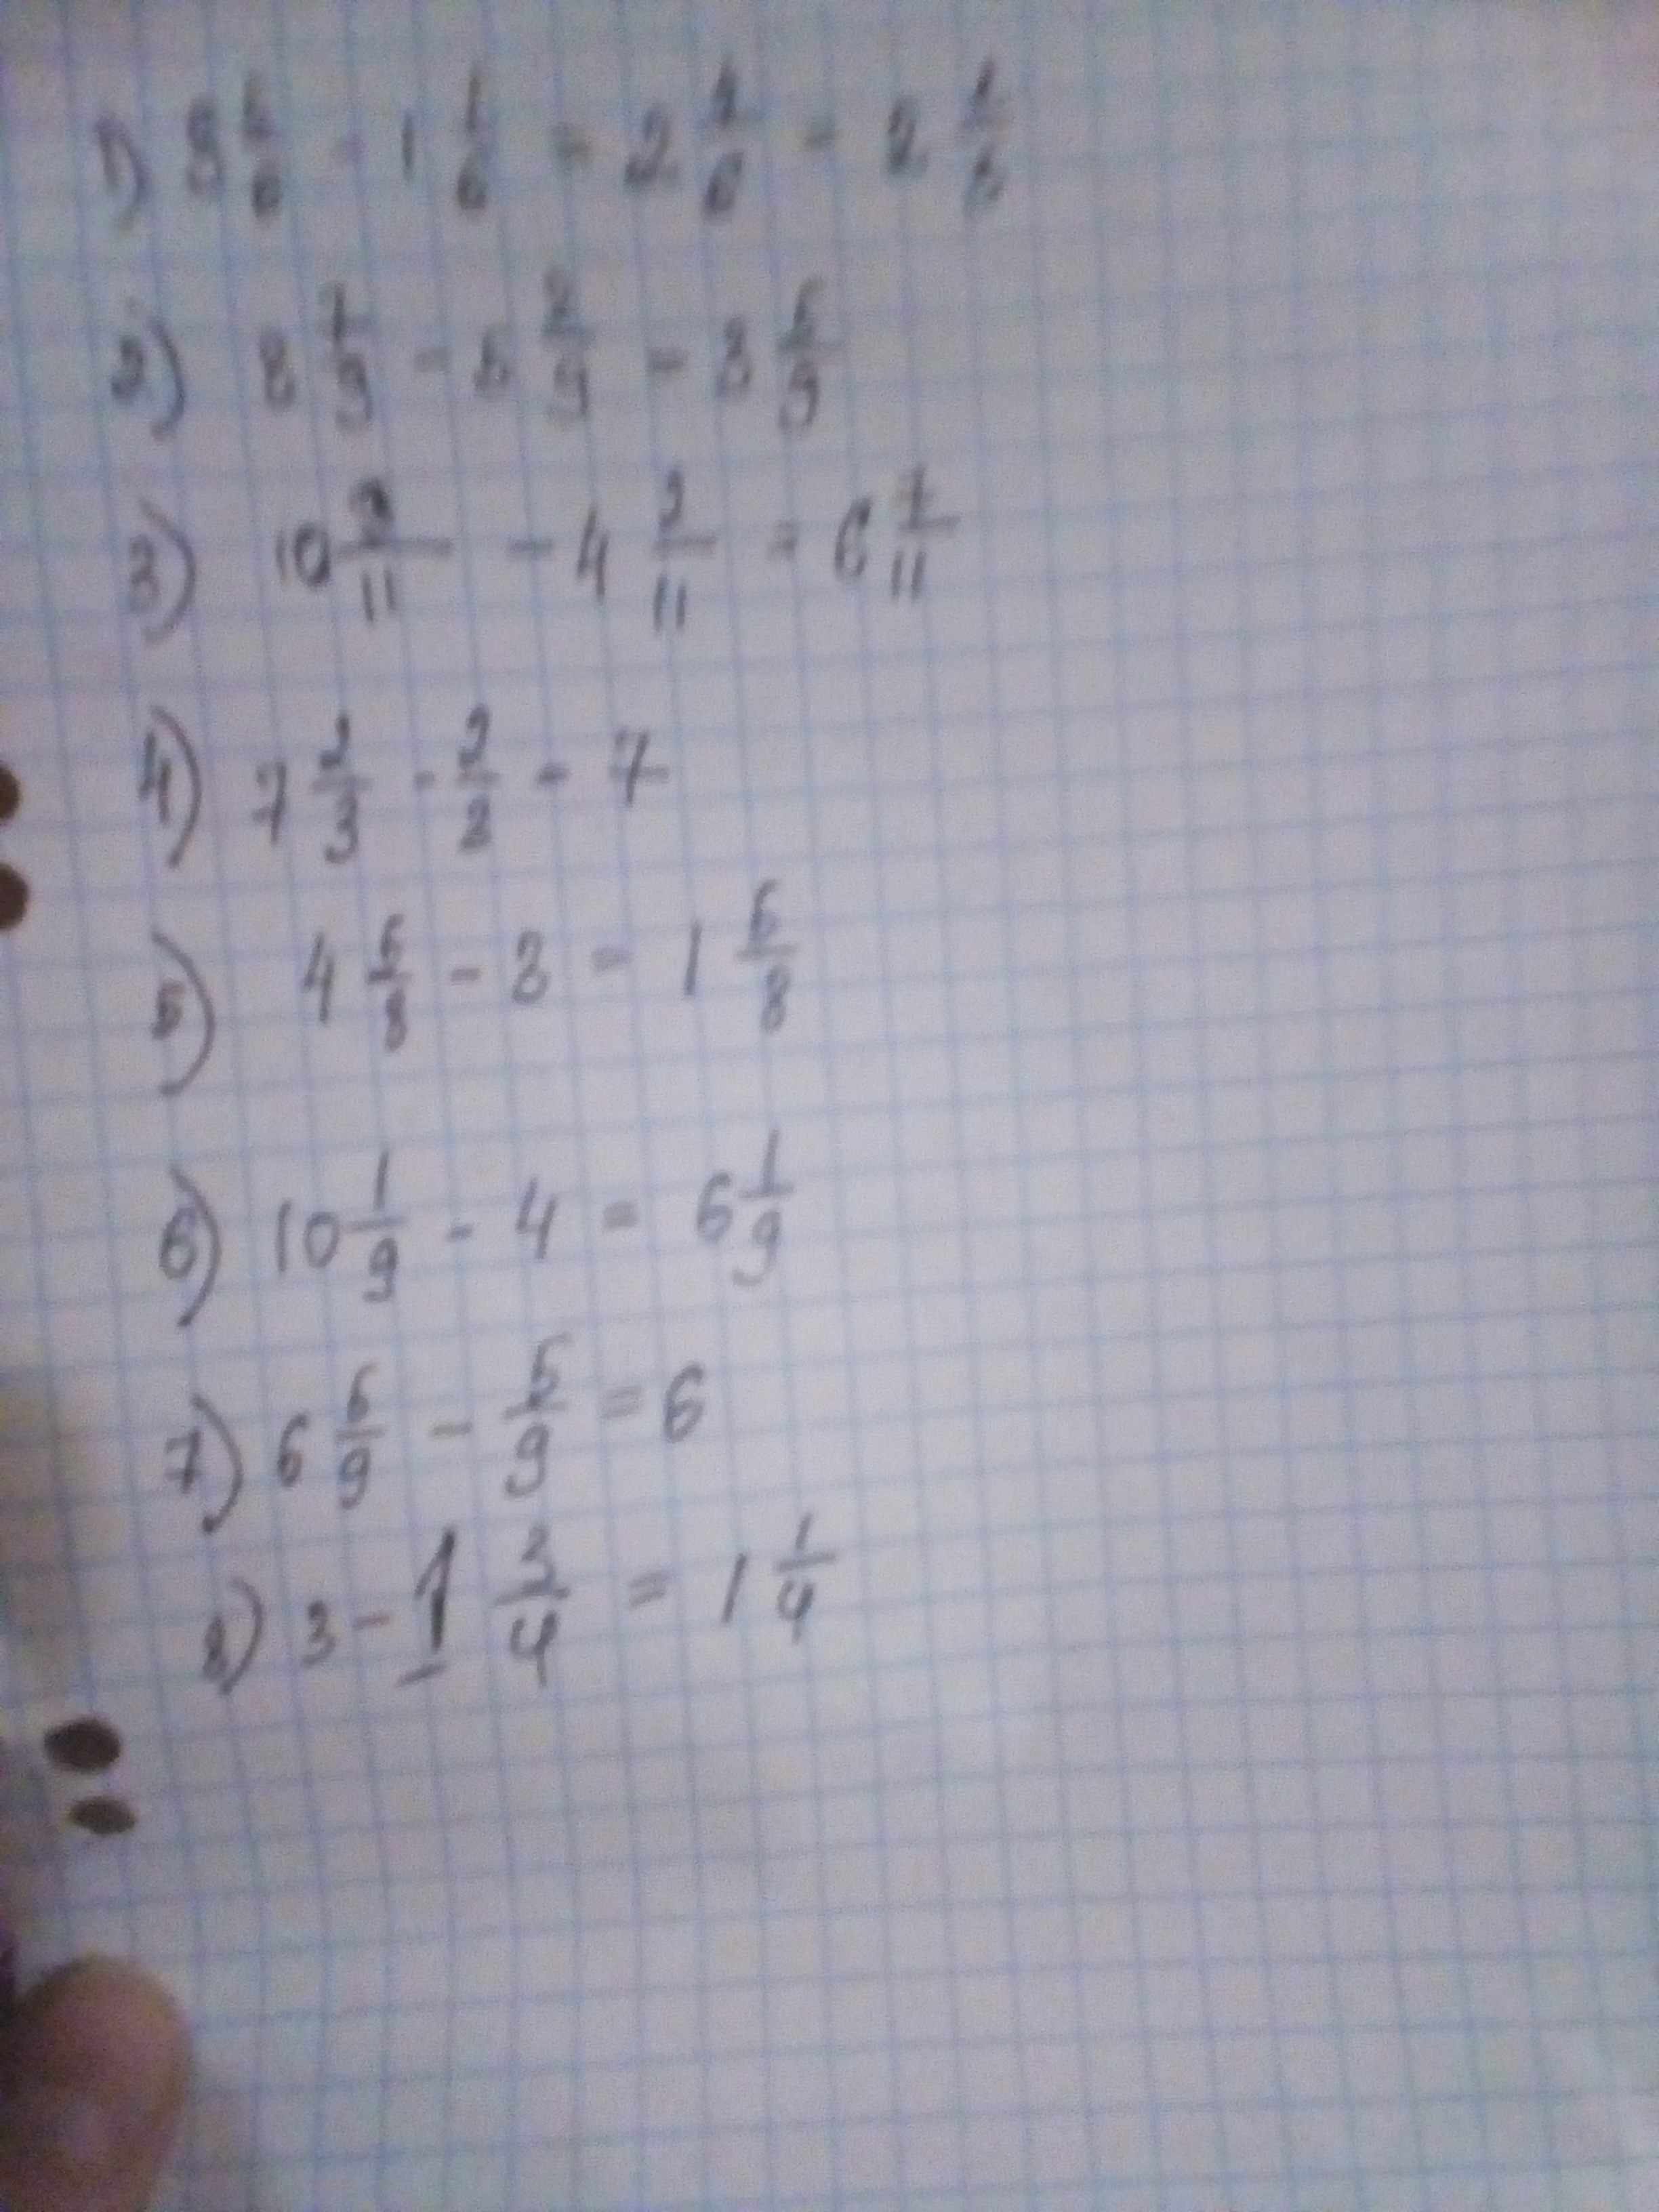 1) 3 5/6 - 1 1/6 = 2 4/6 = 2 2/3
2) 8 7/9 - 5 2/9 = 3 5/9
3) 10 9/11 - 4 2/11 = 6 7/11
4) 7 2/3 - 2/3 = 7
5) 4 5/8 - 3 = 1 5/8
6) 10 1/9 - 4 = 6 1/9
7) 6 5/9 - 5/9 = 6
8) 3 - 1 3/4 = 1 1/4